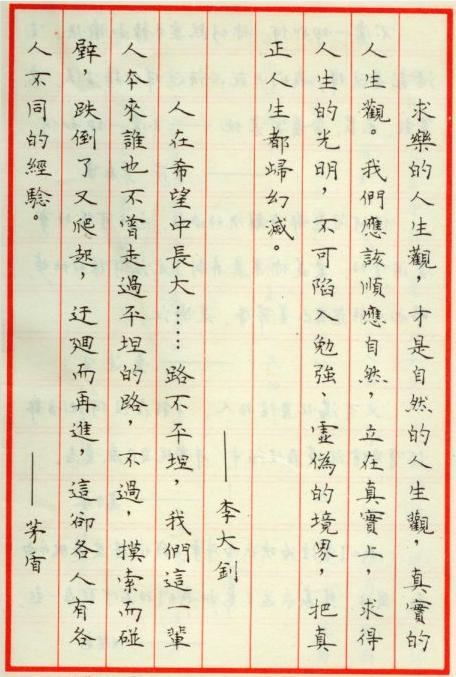 求樂的人生觀，才是自然的人生觀，真實的
人生觀。我們應該順應自然，立在真實上，求得
人生的光明，不可陷勉強 虛偽的境界，把真
正人生都歸幻滅。
——李大釗
人在希望中長大……路不平坦，我們這一輩
人本來誰也不曾走過平坦的路，不過，摸索而碰
壁，跌倒了又爬起，迂迴而再進 這卻各人有各
人不同的經驗。
——茅盾